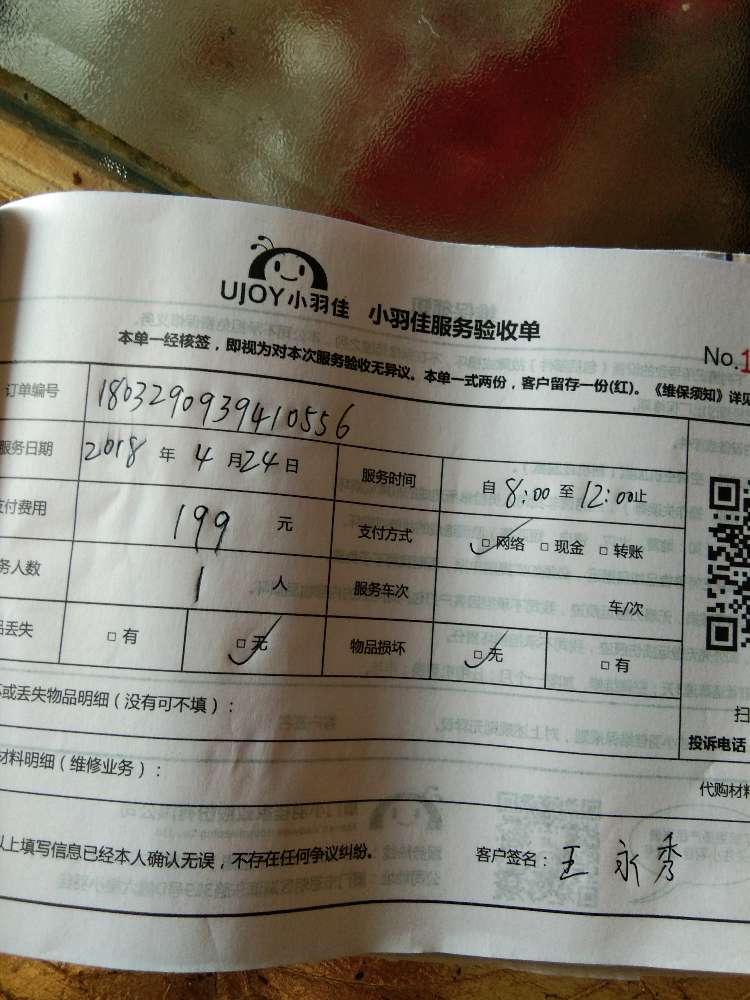 UJOY小羽佳 小羽佳服务验收单
No.1
本单一经核签，即视为对本次服务验收无异议。本单一式两份，客户留存一份(红)。《维保须知》详见
订单编号 1803290939410556
服务日期 2018 年 4 月 24 日 服务时间 自 8:00 至 12:00止
付费用 199 元 支付方式 网络 现金 转账
务人数 1 人 服务车次 车/次
品丢失 有 无 物品损坏 无 有
扫
坏或丢失物品明细（没有可不填）：
投诉电话
材料明细（维修业务）：
代购材料
以上填写信息已经本人确认无误，不存在任何争议纠纷。 客户签名：王永秀